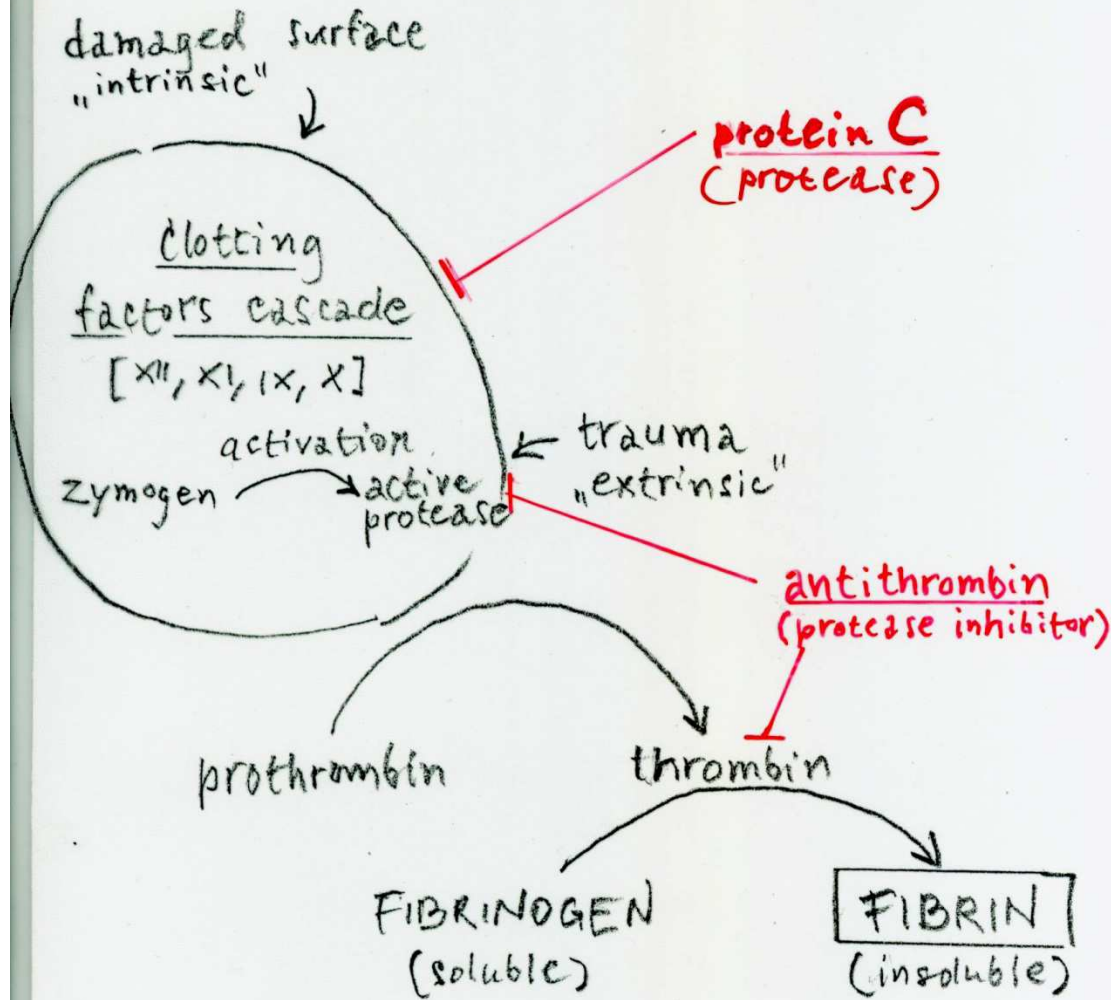 damaged surface
„intrinsic"
protein C
(protease)
Clotting
factors cascade
[XII, XI, IX, X]
activation
zymogen
active
protease
trauma
„extrinsic"
antithrombin
(protease inhibitor)
prothrombin
thrombin
FIBRINOGEN
(soluble)
FIBRIN
(insoluble)